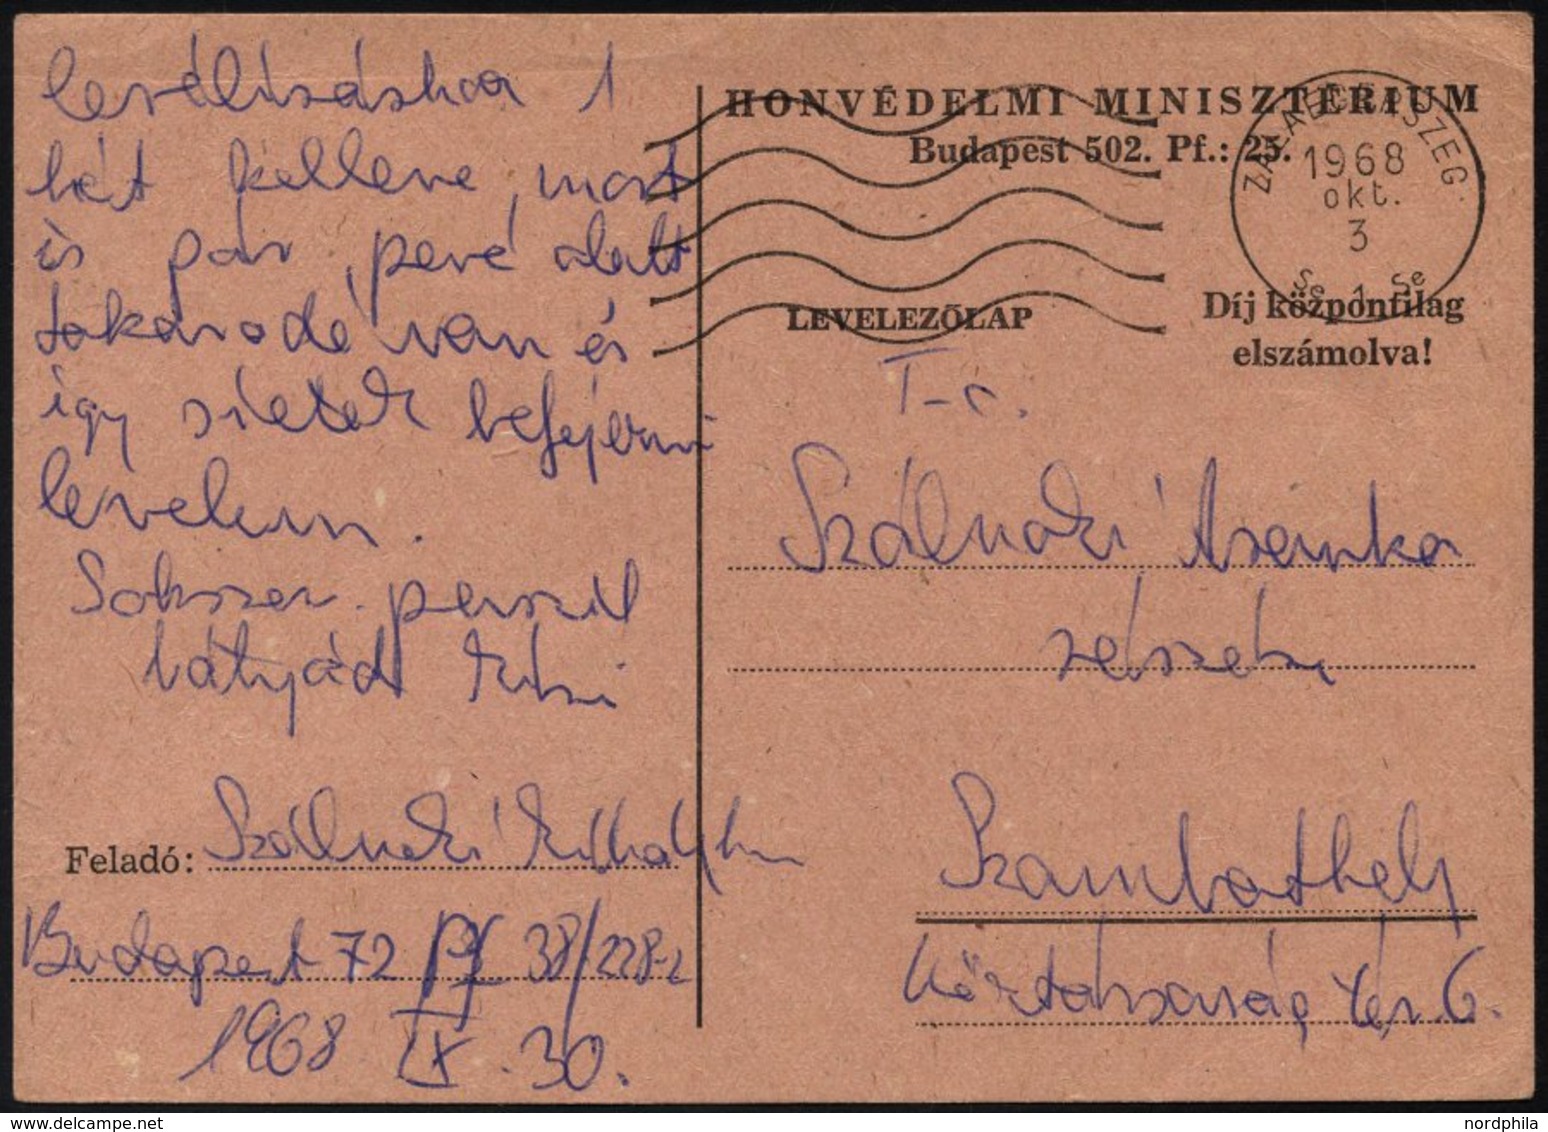 levélíráshoz 1
hét kellene, most
is pár perc alatt
takarodó van és
így sietek befejezni
levelem.
Sokszor puszil
bátyád Misi
Feladó: Szálnoki Mihály hv
Budapest 72 Pf 38/228-2
1968. IX. 30.
HONVÉDELMI MINISZTÉRIUM
Budapest 502. Pf.: 25.
ZALAEGERSZEG
1968
okt.
3
LEVELEZŐLAP
Díj központilag
elszámolva!
T-c.
Szálnoki
részére
Szombathely
Köztársaság tér 6.
nordphila.com